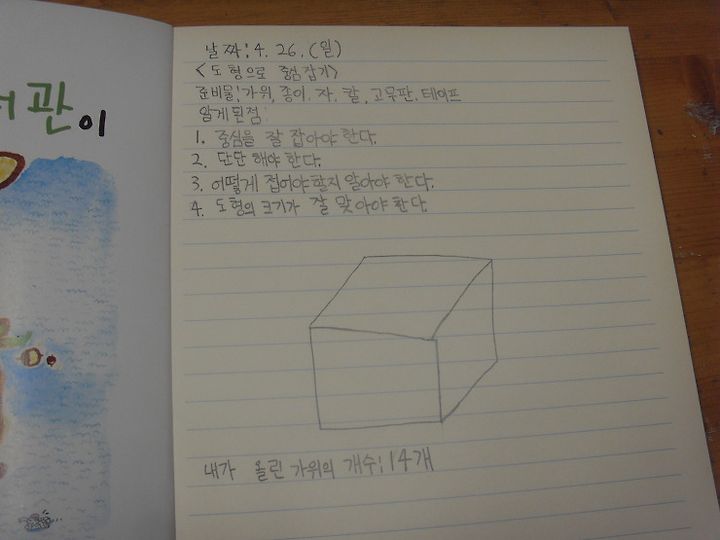 관이
날짜: 4. 26. (월)
<도형으로 중심잡기>
준비물: 가위, 종이. 자, 칼, 고무판, 테이프
알게된점:
1. 중심을 잘 잡아야 한다.
2. 단단 해야 한다.
3. 어떻게 접어야 할지 알아야 한다.
4. 도형의 크기가 잘 맞아야 한다.
내가 올린 가위의 개수: 14개